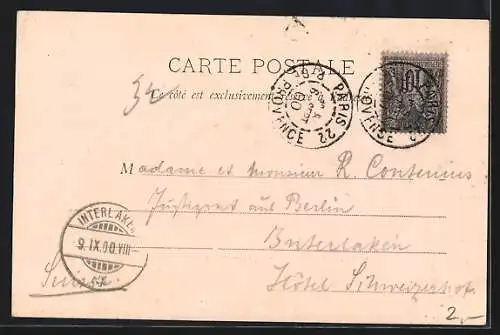 34
CARTE POSTALE
Ce côté est exclusivement
PARIS 22
PROVENCE
PARIS
PROVENCE
10
Madame et Monsieur R. Contenius
Justizrat aus Berlin
INTERLAKEN
9.IX.00.VIII-
Interlaken
Suisse
Hôtel Schweizerhof
2,-